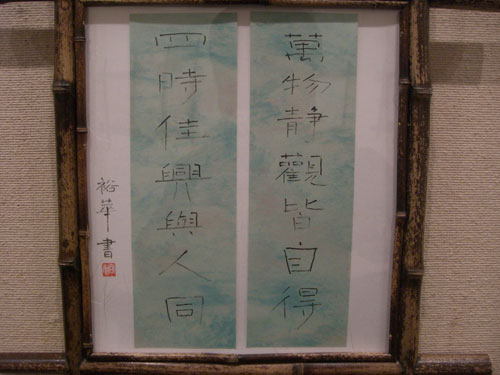 萬物靜觀皆自得
四時佳興與人同
裕華書